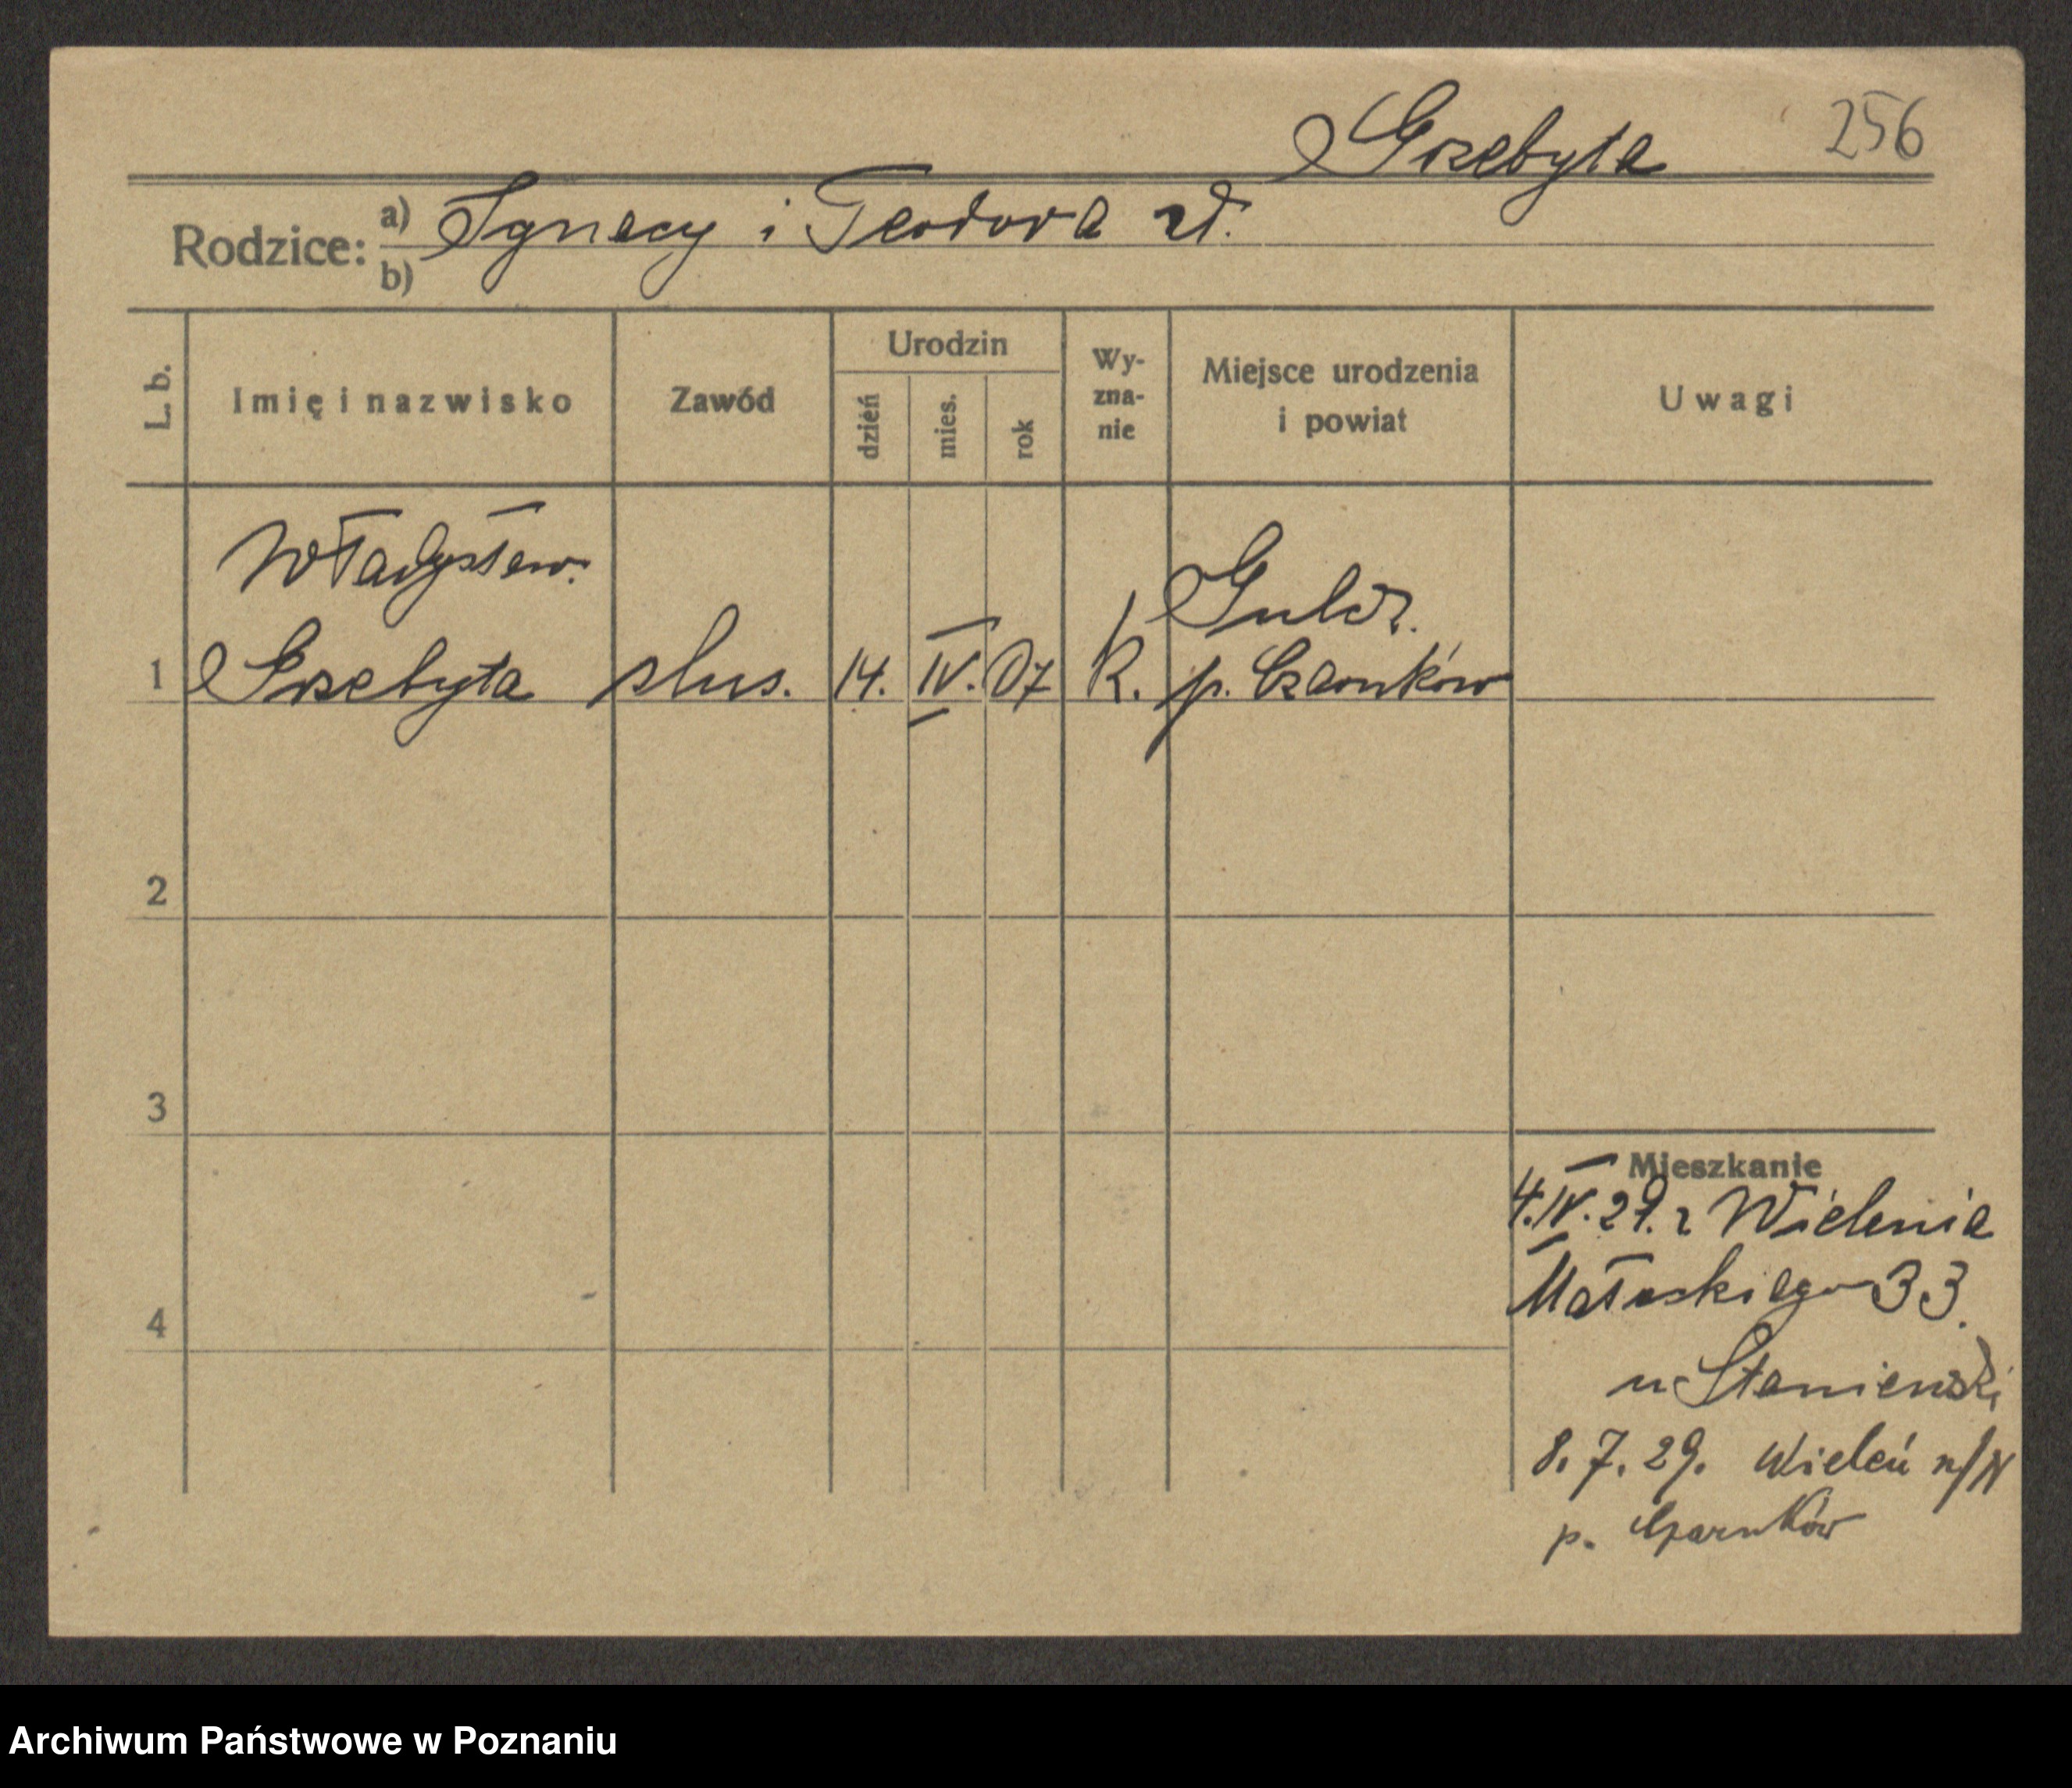 Grzebyta 256
Rodzice: a) Ignacy i Teodora
b)
L. b. Imię i nazwisko Zawód Urodzin dzień mies. rok Wy-zna-nie Miejsce urodzenia i powiat Uwagi
Władysław.
1 Grzebyta ślus. 14. IV. 07 k. p. Czarnków
2
3
4
Mieszkanie
4.IV.29. z Wielenia
Małeckiego 33.
u
8.7.29. Wieleń n/N
p. Czarnków
Archiwum Państwowe w Poznaniu